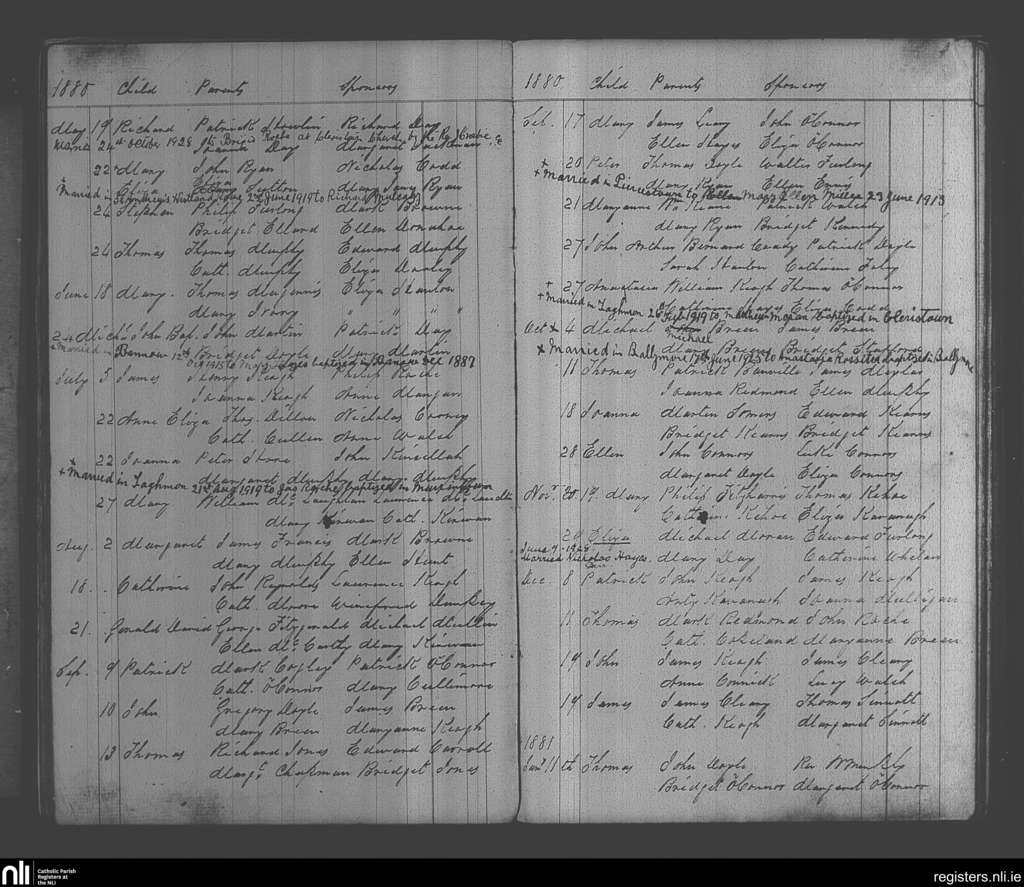 1880 Child Parents Sponsors
May 19 Richard Patrick Richard Day
Married 24th October 1928 to Brigid Roche at Cleristown Church by the Rev
Joanna Day Margaret
22nd Mary John Ryan Nicholas Codd
Eliza Sutton Mary Jane Ryan
Married in 2nd June 1919 to Richard
24 Stephen Philip Furlong Mark Browne
Bridget Ellard Ellen Donahoe
24 Thomas Thomas Murphy Edward Murphy
Cath. Murphy Eliza
June 18 Mary Thomas Maginnis Eliza Hanlon
Mary Ivory " " "
24 Mich'l John Bap. John Martin Patrick Day
Bridget Doyle Mary Martin
+ Married in Bannow 12th 1915 to Mary baptized in Bannow 1887
July 5 James Henry Keogh Philip Roche
Joanna Keogh Anne Mangan
22 Anne Eliza Thos. Dillon Nicholas Cooney
Cath. Cullen Anne Walsh
22 Joanna Peter Hore John Kinsellah
Margaret Murphy Mary Murphy
+ Married in Taghmon 21st Aug 1919 to Jas Roche baptized in
27 Mary William McLaughlan Laurence
Mary Kirwan Cath. Kirwan
Aug. 2 Margaret James Francis Mark Browne
Mary Murphy Ellen Hunt
16. Catherine John Reynolds Laurence Keogh
Cath. Moore Winefred Murphy
21. Gerald David George Fitzgerald Michael
Ellen McCarthy Mary Kirwan
Sep. 9 Patrick Mark Cogley Patrick O'Connor
Cath. O'Connor Mary Cullimore
10 John Gregory Doyle James Breen
Mary Breen Maryanne Keogh
13 Thomas Richard Jones Edward Carroll
Margt. Chapman Bridget Jones
1880 Child Parents Sponsors
Sep. 17 Mary James Leary John O'Connor
Ellen Hayes Eliza O'Connor
+ 20 Peter Thomas Doyle Walter Furlong
Mary Ryan Ellen Ennis
+ Married in Piercestown to Mary J. 23 June 1913
21 Maryanne Wm Keane Patrick Walsh
Mary Ryan Bridget Kennedy
27 John Arthur Bernard Coady Patrick Doyle
Sarah Hanlon Catherine Foley
+ 27 Anastasia William Keogh Thomas O'Connor
Catherine Hayes Eliza Codd
+ Married in Taghmon 26 Feb 1919 to Moran baptized in Cleristown
Oct + 4 Michael Michael Breen James Breen
Mary Breen Bridget Stafford
+ Married in Ballymore 17th June 1925 to Anastasia Rossiter baptized in Ballymore
11 Thomas Patrick Banville James Meyler
Joanna Redmond Ellen Murphy
18 Joanna Martin Somers Edward Kearns
Bridget Kearns Bridget Kearns
28 Ellen John Connors Luke Connors
Margaret Doyle Eliza Connors
Novr. 19. Mary Philip Fitzharris Thomas Kehoe
Kehoe Eliza Kavanagh
20 Eliza Michael Moran Edward Furlong
Mary Day Catherine Whelan
June 7 - 1948
Married Nicholas Hayes
Dec. 8 Patrick John Keogh James Keogh
Kavanagh Joanna Mulligan
11 Thomas Mark Redmond John Roche
Cath. Copeland Maryanne Breen
19 John James Keogh James Cleary
Anne Connick Lucy Walsh
19 James James Cleary Thomas Sinnott
Cath. Keogh Margaret Sinnott
1881
Jany 11th Thomas John Doyle Rev W Murphy
Bridget O'Connor Margaret O'Connor
nli Catholic Parish Registers at the NLI
registers.nli.ie